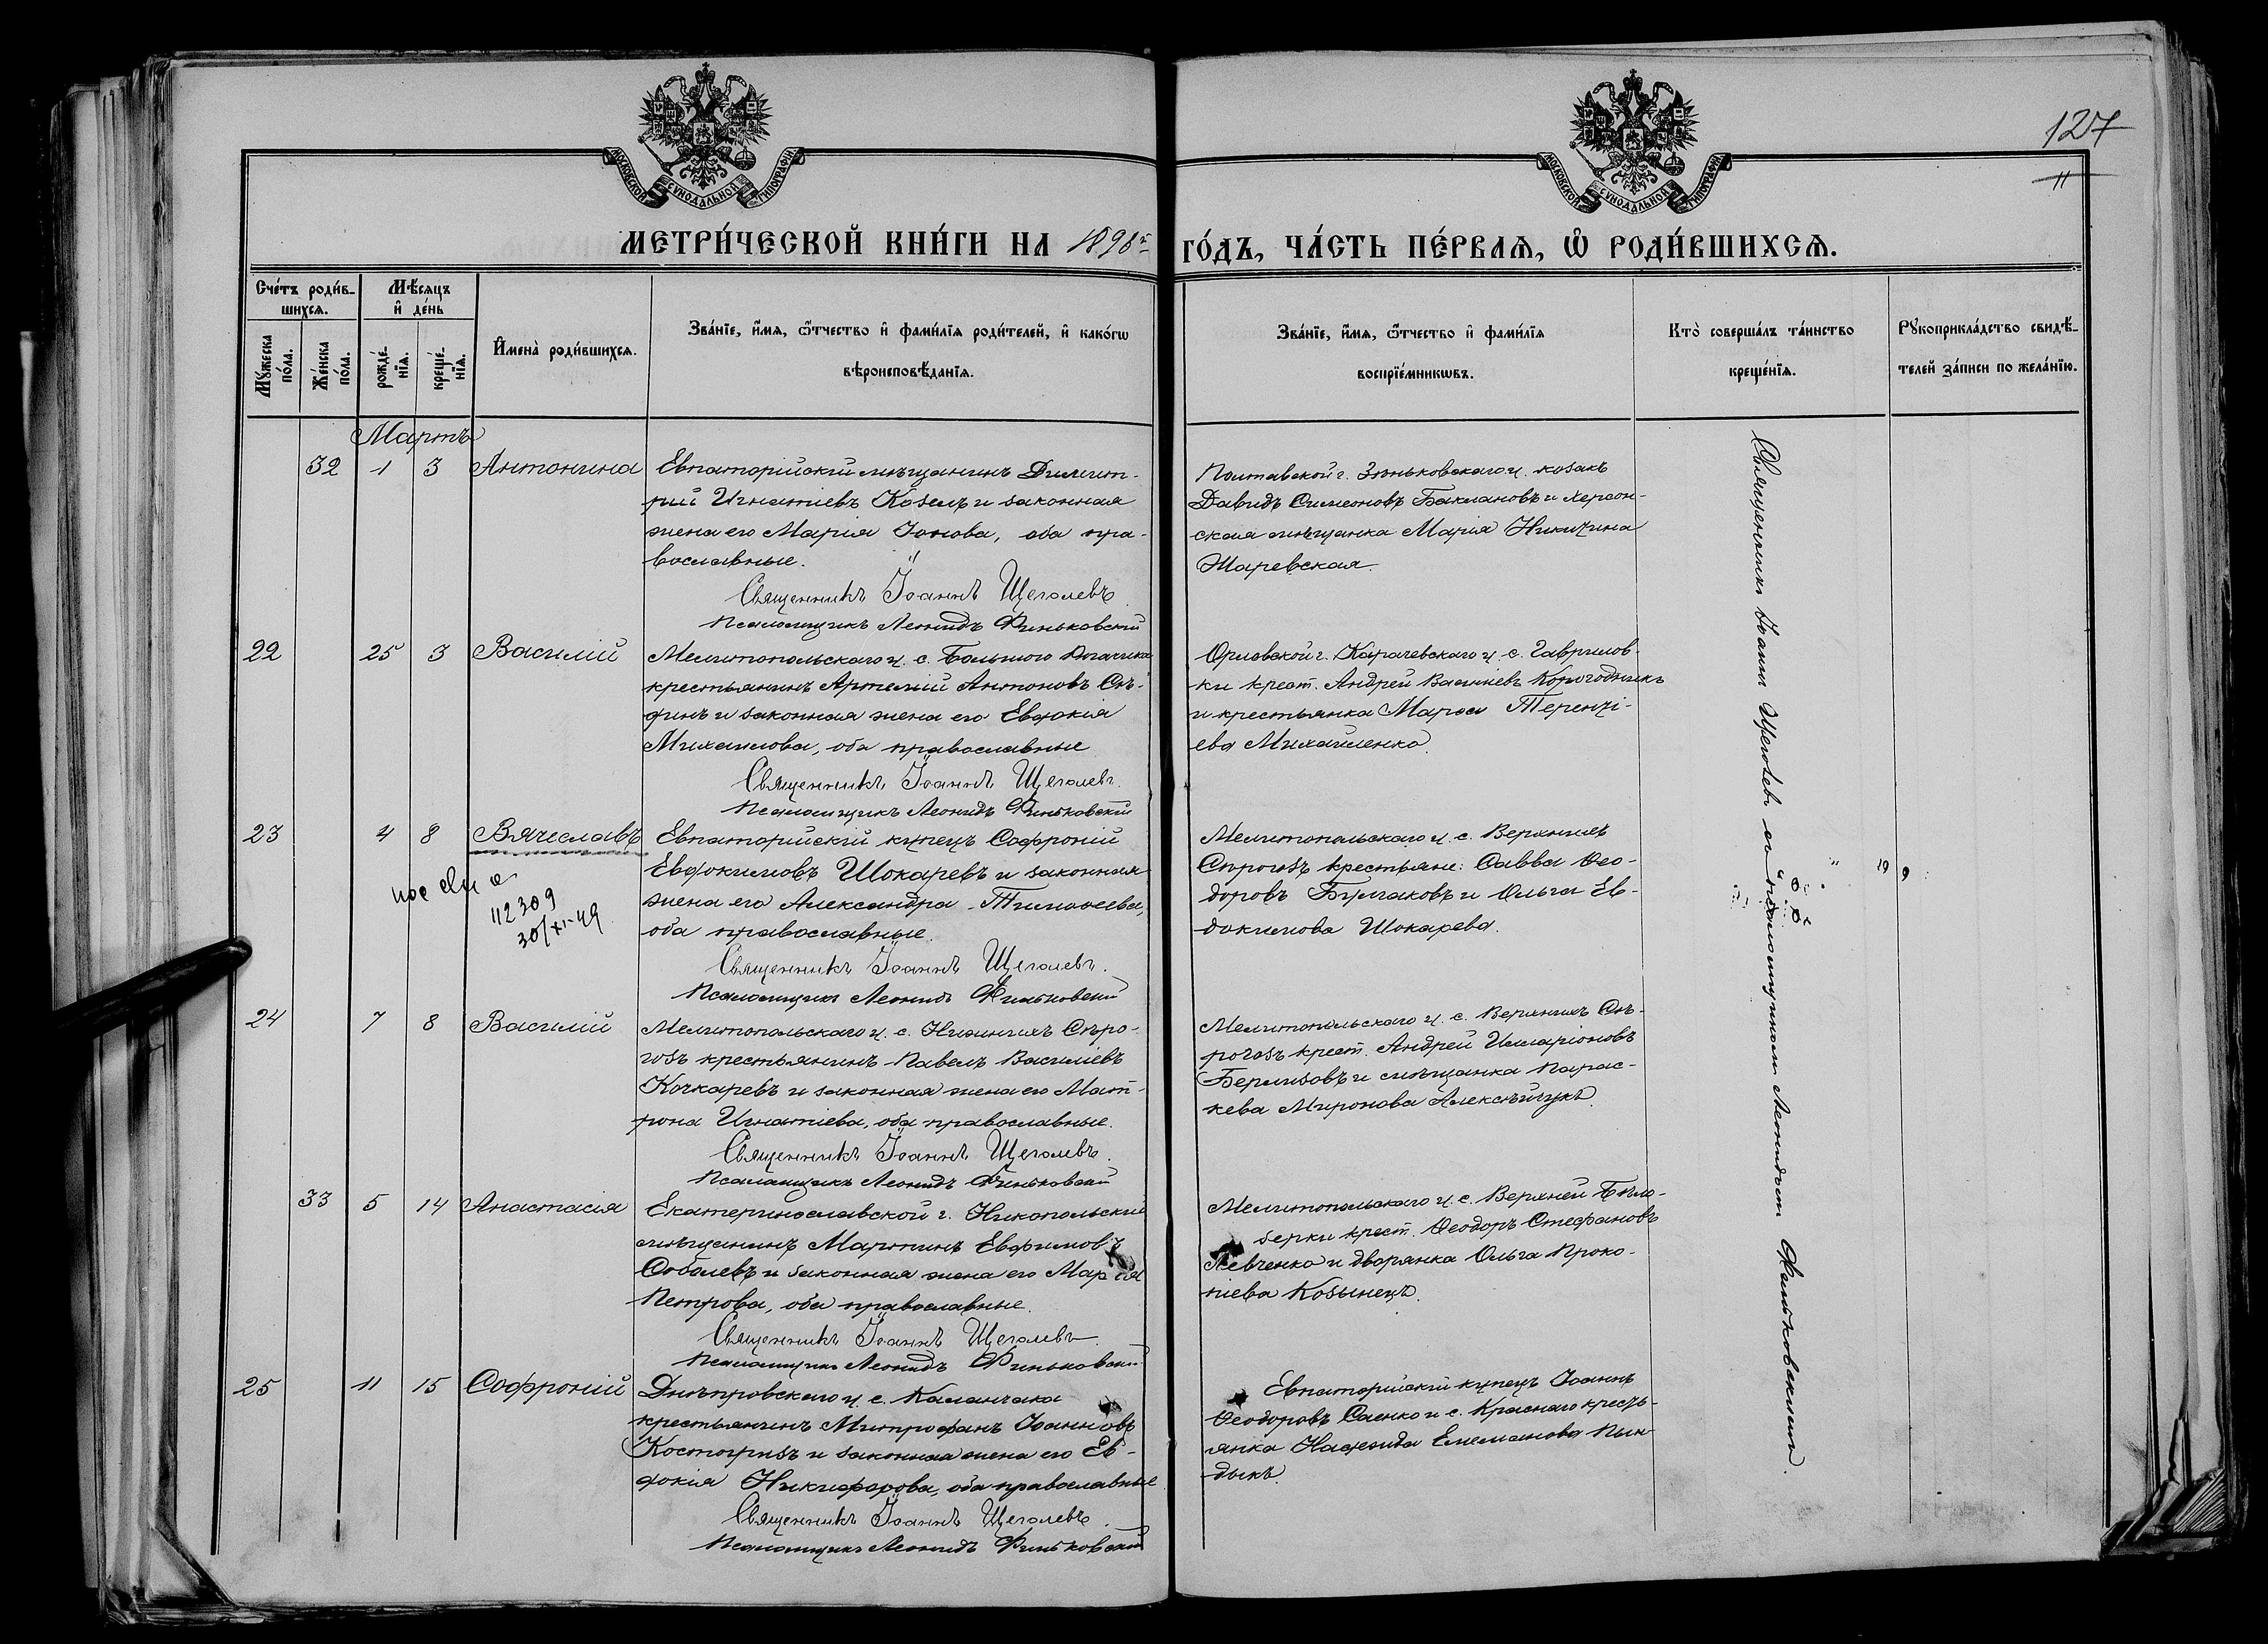 127
11
МОСКОВСКОЙ СѴНОДАЛЬНОЙ ТИПОГРАФІИ
МОСКОВСКОЙ СѴНОДАЛЬНОЙ ТИПОГРАФІИ
МЕТРИ́ЧЕСКОЙ КНИ́ГИ НА 1898й ГО́ДЪ, ЧА́СТЬ ПЕ́РВАЯ, Ѡ РОДИ́ВШИХСЯ.
Сче́тъ роди́в-
шихся.
Мꙋ́жеска по́ла.
Же́нска по́ла.
Мѣ́сяцъ
и҆ де́нь
рожде́-нїя.
креще́-нїя.
И҆мена̀ роди́вшихся.
Зва́нїе, и҆́мя, ѻ҆́тчество и҆ фами́лїя роди́телей, и҆ како́гѡ
вѣроисповѣ́данїя.
Зва́нїе, и҆́мя, ѻ҆́тчество и҆ фами́лїя
воспрїе́мникѡвъ.
Кто̀ соверша́лъ та́инство
креще́нїя.
Рꙋкоприкла́дство свидѣ́-
телей за́писи по жела́нїю.
Мартъ
32 1 3 Антонина
Евпаторійскій мѣщанинъ Димит-
рій Игнатіевъ Козелъ и законная
жена его Марія Іонова, оба пра-
вославные.
Священникъ Іоаннъ Щеголевъ
Псаломщикъ Леонидъ Финьковскій
Полтавской г. Зѣньковскаго у. козакъ
Давидъ Симеоновъ Баклановъ и херсон-
ская мѣщанка Марія Никитина
Жаревская.
22 25 3 Василій
Мелитопольскаго у. с. Большого Рогачика
крестьянинъ Артемій Антоновъ Сѣ-
динъ и законная жена его Евдокія
Михаилова, оба православные
Священникъ Іоаннъ Щеголевъ.
Псаломщикъ Леонидъ Финьковскій
Орловской г. Карачевскаго у. с. Гаврилов-
ки крест. Андрей Василіевъ Корогодникъ
и крестьянка Марѳа Теренті-
ева Михайленко.
23 4 8 Вячеславъ
112309
30/XI-49
Евпаторійскій купецъ Софроній
Евдокимовъ Шокаревъ и законная
жена его Александра Тимоѳеева,
оба православные.
Священникъ Іоаннъ Щеголевъ.
Псаломщикъ Леонидъ Финьковскій
Мелитопольскаго у. с. Верхнихъ
Сѣрогозъ крестьяне: Савва Ѳео-
доровъ Булгаковъ и Ольга Ев-
докимова Шокарева.
24 7 8 Василій
Мелитопольскаго у. с. Нижнихъ Сѣро-
гозъ крестьянинъ Павелъ Василіевъ
Кочкаревъ и законная жена его Мат-
рона Игнатіева, оба православные.
Священникъ Іоаннъ Щеголевъ.
Псаломщикъ Леонидъ Финьковскій
Мелитопольскаго у. с. Верхнихъ Сѣ-
рогозъ крест. Андрей Илларіоновъ
Берлизовъ и мѣщанка Парас-
кева Миронова Алексѣйчукъ.
33 5 14 Анастасія
Екатеринославской г. Никопольскій
мѣщанинъ Мартинъ Евфимовъ
Соболевъ и законная жена его Марія
Петрова, оба православные.
Священникъ Іоаннъ Щеголевъ
Псаломщикъ Леонидъ Финьковскій
Мелитопольскаго у. с. Верхней Бѣло-
зерки крест. Ѳеодоръ Стефановъ
Левченко и дворянка Ольга Проко-
піева Козынецъ.
25 11 15 Софроній
Днѣпровскаго у. с. Каланчака
крестьянинъ Митрофанъ Іоанновъ
Костогризъ и законная жена его Ев-
докія Никифорова, оба православные
Священникъ Іоаннъ Щеголевъ.
Псаломщикъ Леонидъ Финьковскій
Евпаторійскій купецъ Іоаннъ
Ѳеодоровъ Саенко и с. Краснаго кресть-
янка Надежда Емеліанова Пын-
дыкъ.
Священникъ Іоаннъ Щеголевъ съ псаломщикомъ Леонидомъ Финьковскимъ.